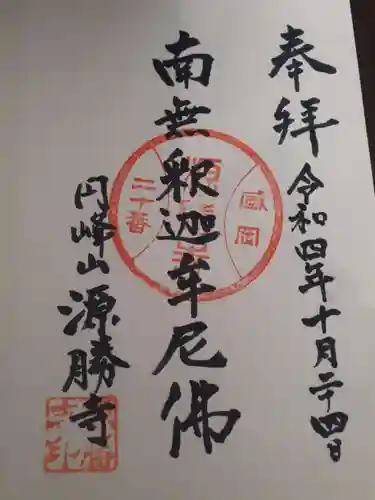 奉拝
令和四年十月二十四日
南無釈迦牟尼佛
盛岡
三十番
円峰山
源勝寺